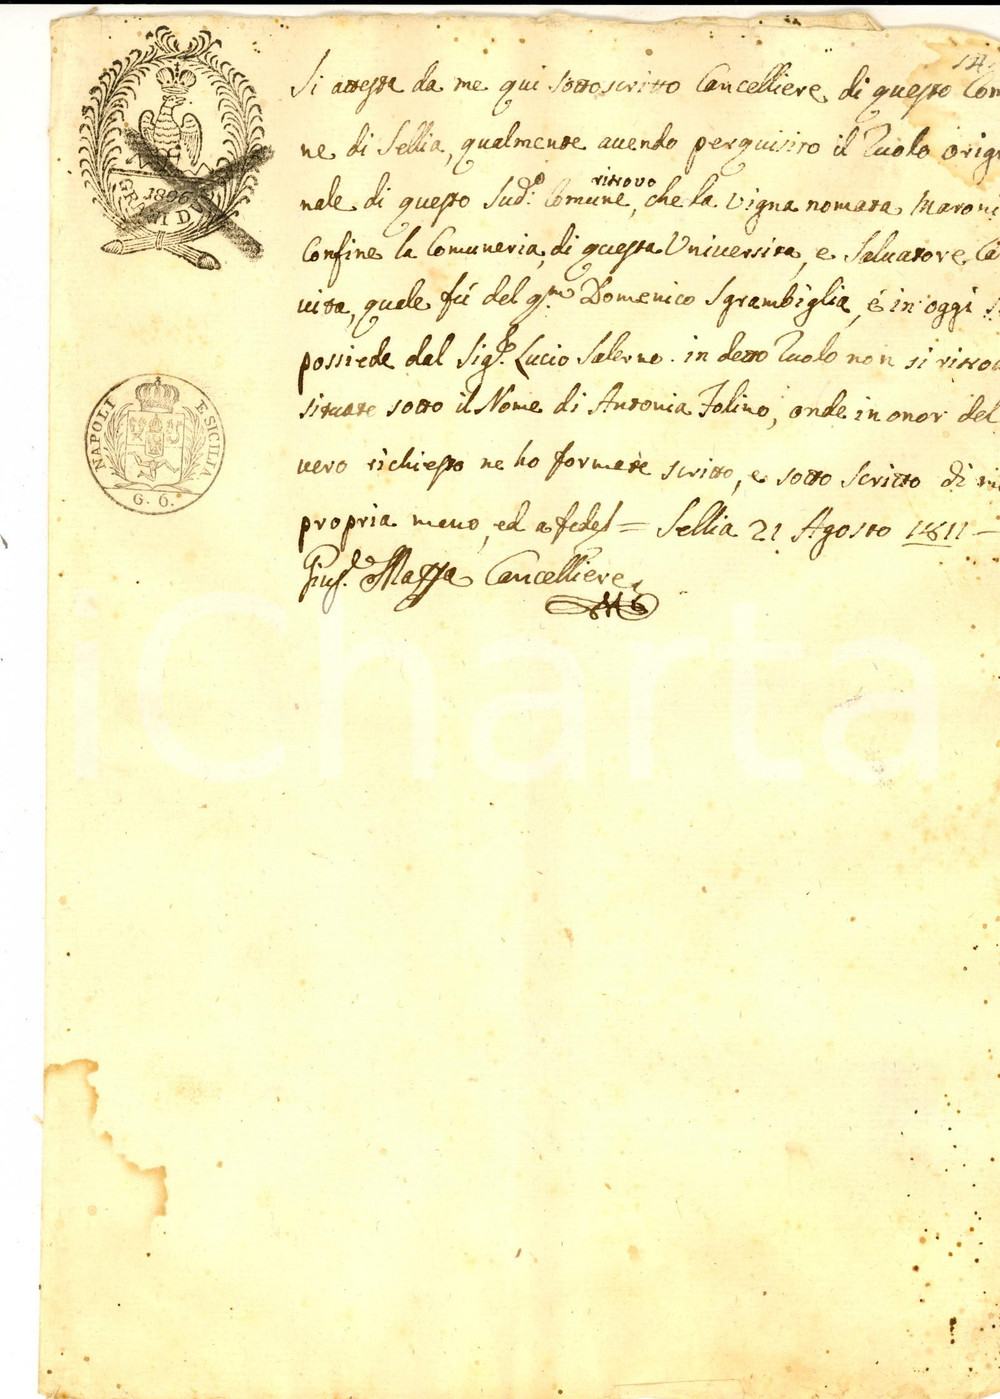 14
Si attesta da me qui sottoscritto Cancelliere di questo Com
ne di Sellia, qualmente avendo perquisito il Ruolo origi
nale di questo Sud.o Comune, ritrovo che la vigna nomata Maroni
Confine la Comuneria di questa Università, e Salvatore Ca
vita, quale fù del qm Domenico Sgrambiglia, é in oggi
possiede dal Sig.r Lucio Salerno. in detto Ruolo non si ritrov
situate sotto il Nome di Antonia Folino, onde in onor del
vero richiesto ne ho formate scritto, e sotto scritto di
propria mano, ed a fede = Sellia 21 Agosto 1811 –
Gius.e Mazza Cancelliere
1806
GRANI D
NAPOLI E SICILIA
G. 6.
iCharta